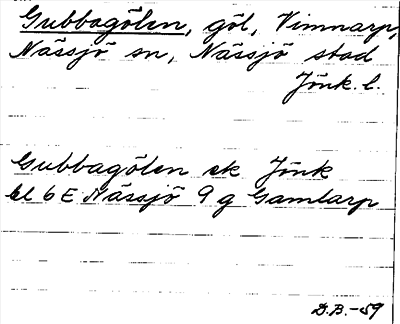 Gubbagölen, göl, Vimnarp,
Nässjö sn, Nässjö stad
Jönk. l.
Gubbagölen ek Jönk
bl 6E Nässjö 9 g Gamlarp
D.B.-59